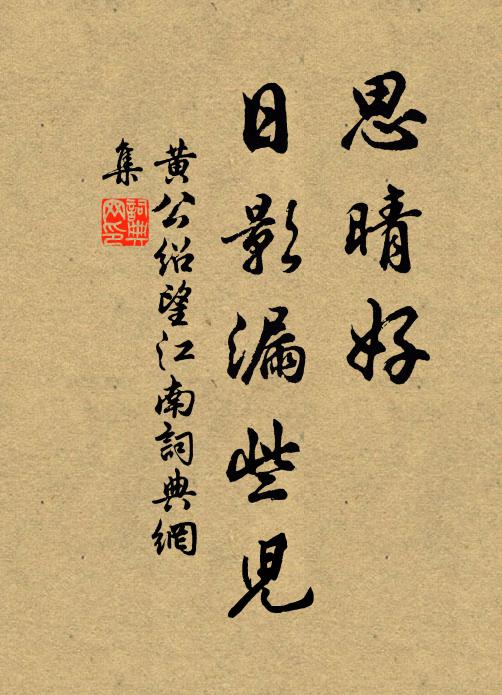 思晴好
日影漏些兒
黄公紹望江南詞典網
集
詞典
网印